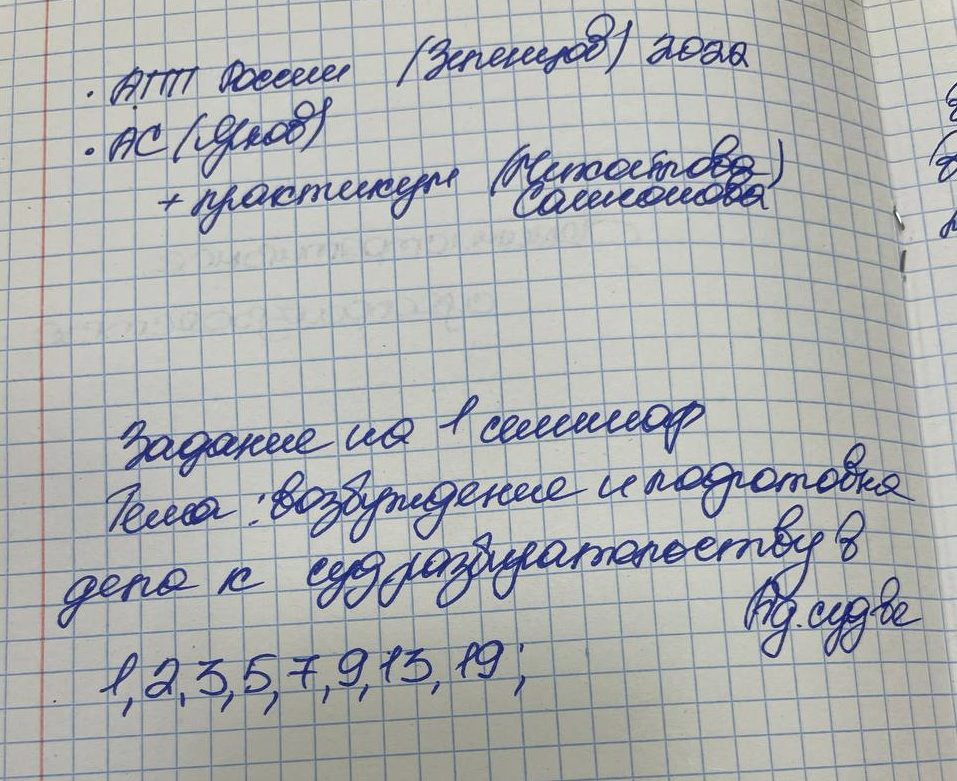 · АПП России (Зеленцов) 2022
· АС (Ярков)
+ практикум (
Салмонова)
Задание на 1 семинар
Тема: возбуждение и подготовка
дела к суд разбирательству в
Ад. суд-ве
1, 2, 3, 5, 7, 9, 13, 19;